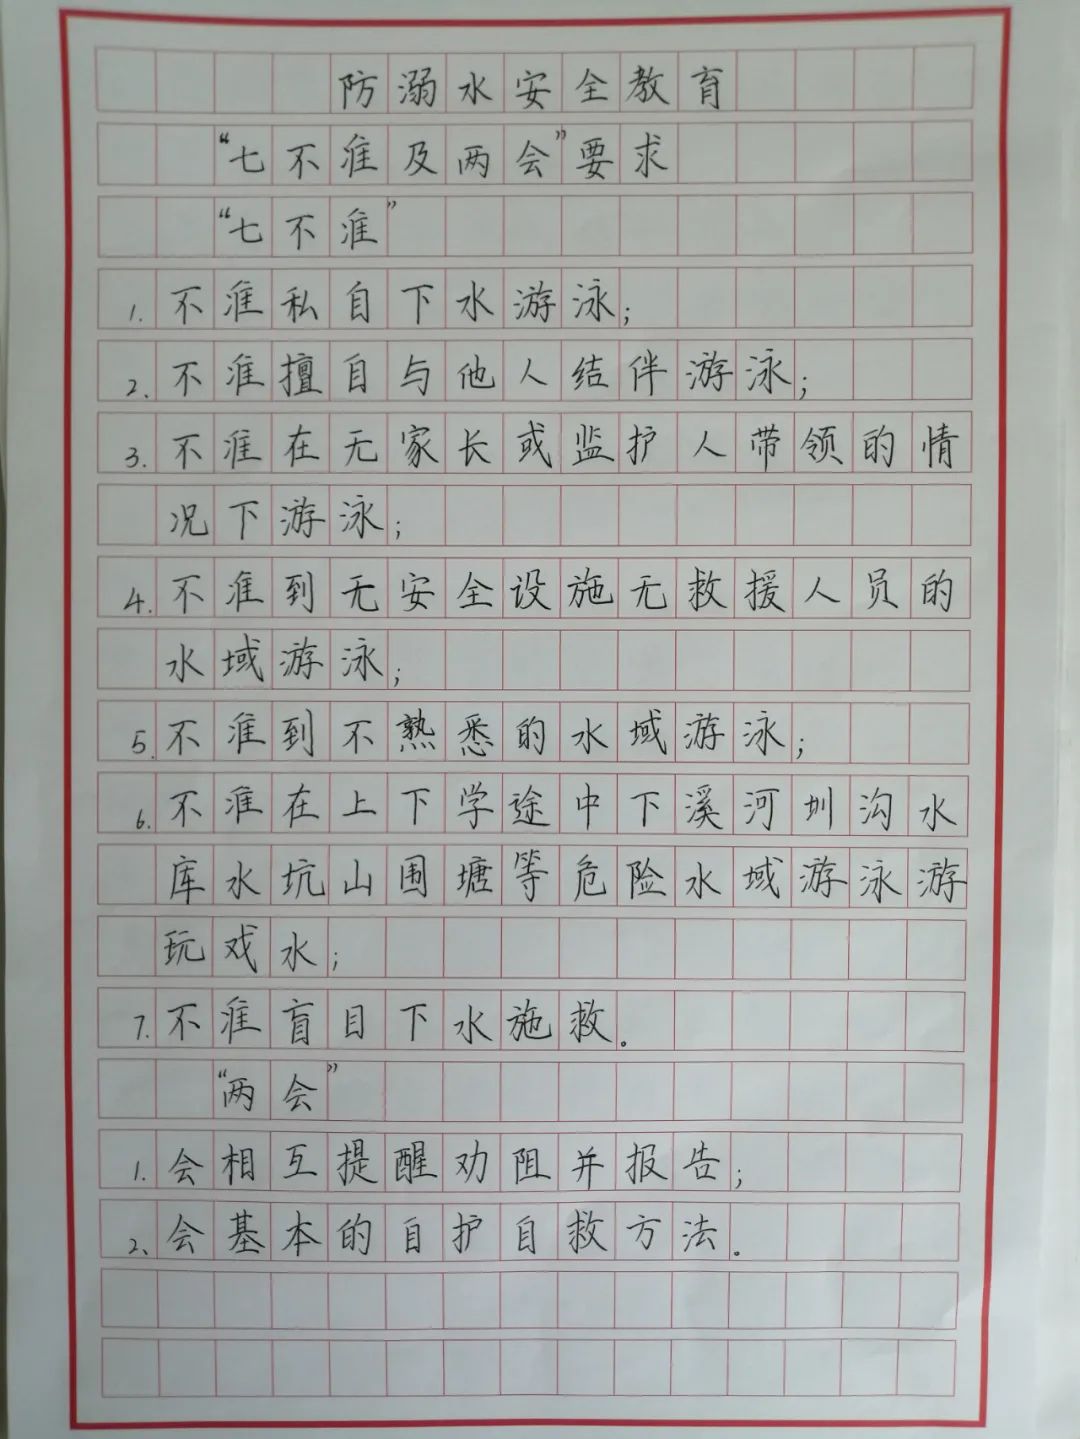 防溺水安全教育
“七不准及两会”要求
“七不准”
1.不准私自下水游泳；
2.不准擅自与他人结伴游泳；
3.不准在无家长或监护人带领的情
况下游泳；
4.不准到无安全设施无救援人员的
水域游泳；
5.不准到不熟悉的水域游泳；
6.不准在上下学途中下溪河圳沟水
库水坑山围塘等危险水域游泳游
玩戏水；
7.不准盲目下水施救。
“两会”
1.会相互提醒劝阻并报告；
2、会基本的自护自救方法。